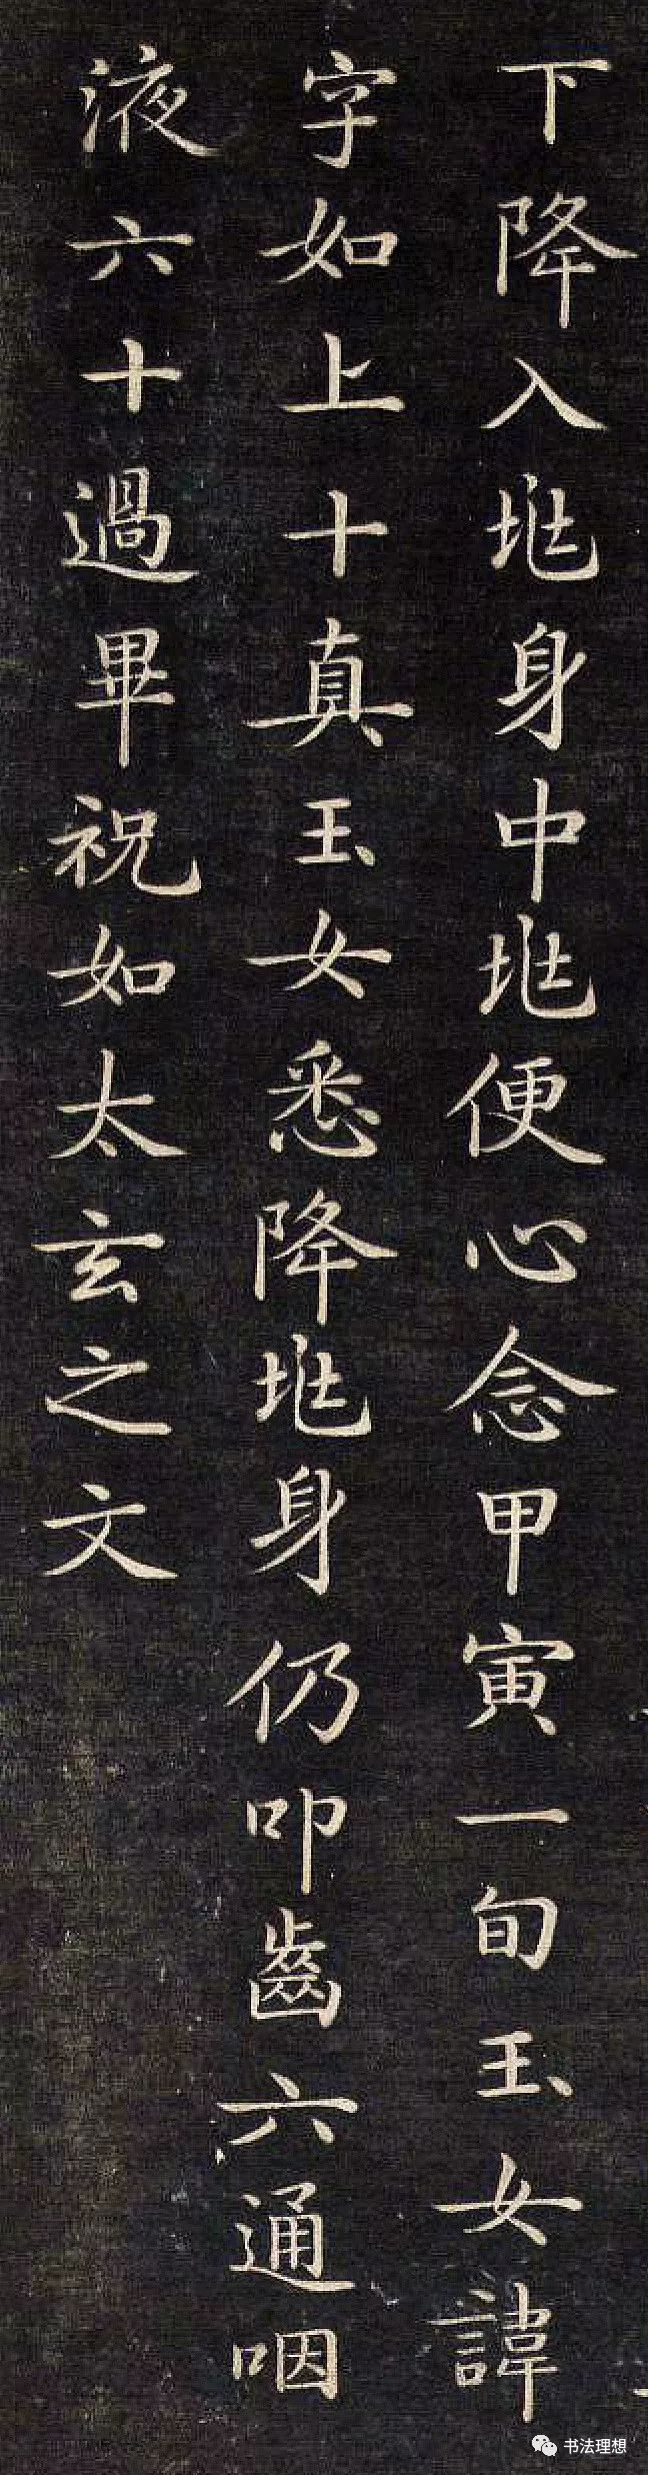 下降入兆身中兆便心念甲寅一旬玉女諱
字如上十真玉女悉降兆身仍叩齒六通咽
液六十過畢祝如太玄之文
书法理想